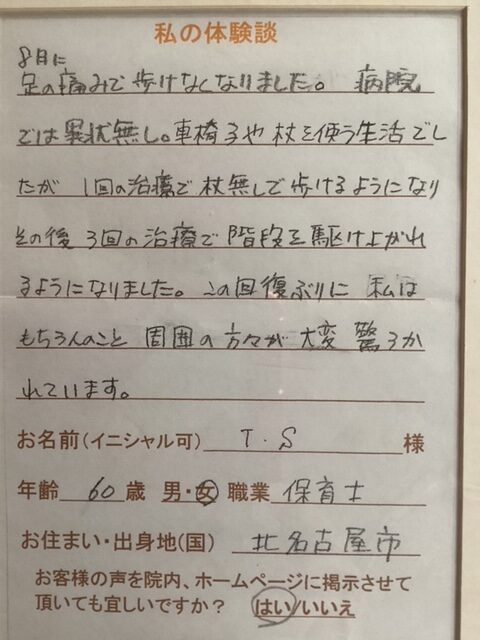 私の体験談
8月に
足の痛みで歩けなくなりました。 病院
では異状無し。車椅子や杖を使う生活でし
たが 1回の治療で杖無しで歩けるようになり
その後 3回の治療で階段を駆け上がれ
るようになりました。この回復ぶりに 私は
もちろんのこと 周囲の方々が大変 驚ろか
れています。
お名前(イニシャル可) T.S 様
年齢 60 歳 男・女 職業 保育士
お住まい・出身地(国) 北名古屋市
お客様の声を院内、ホームページに掲示させて
頂いても宜しいですか? はい/いいえ